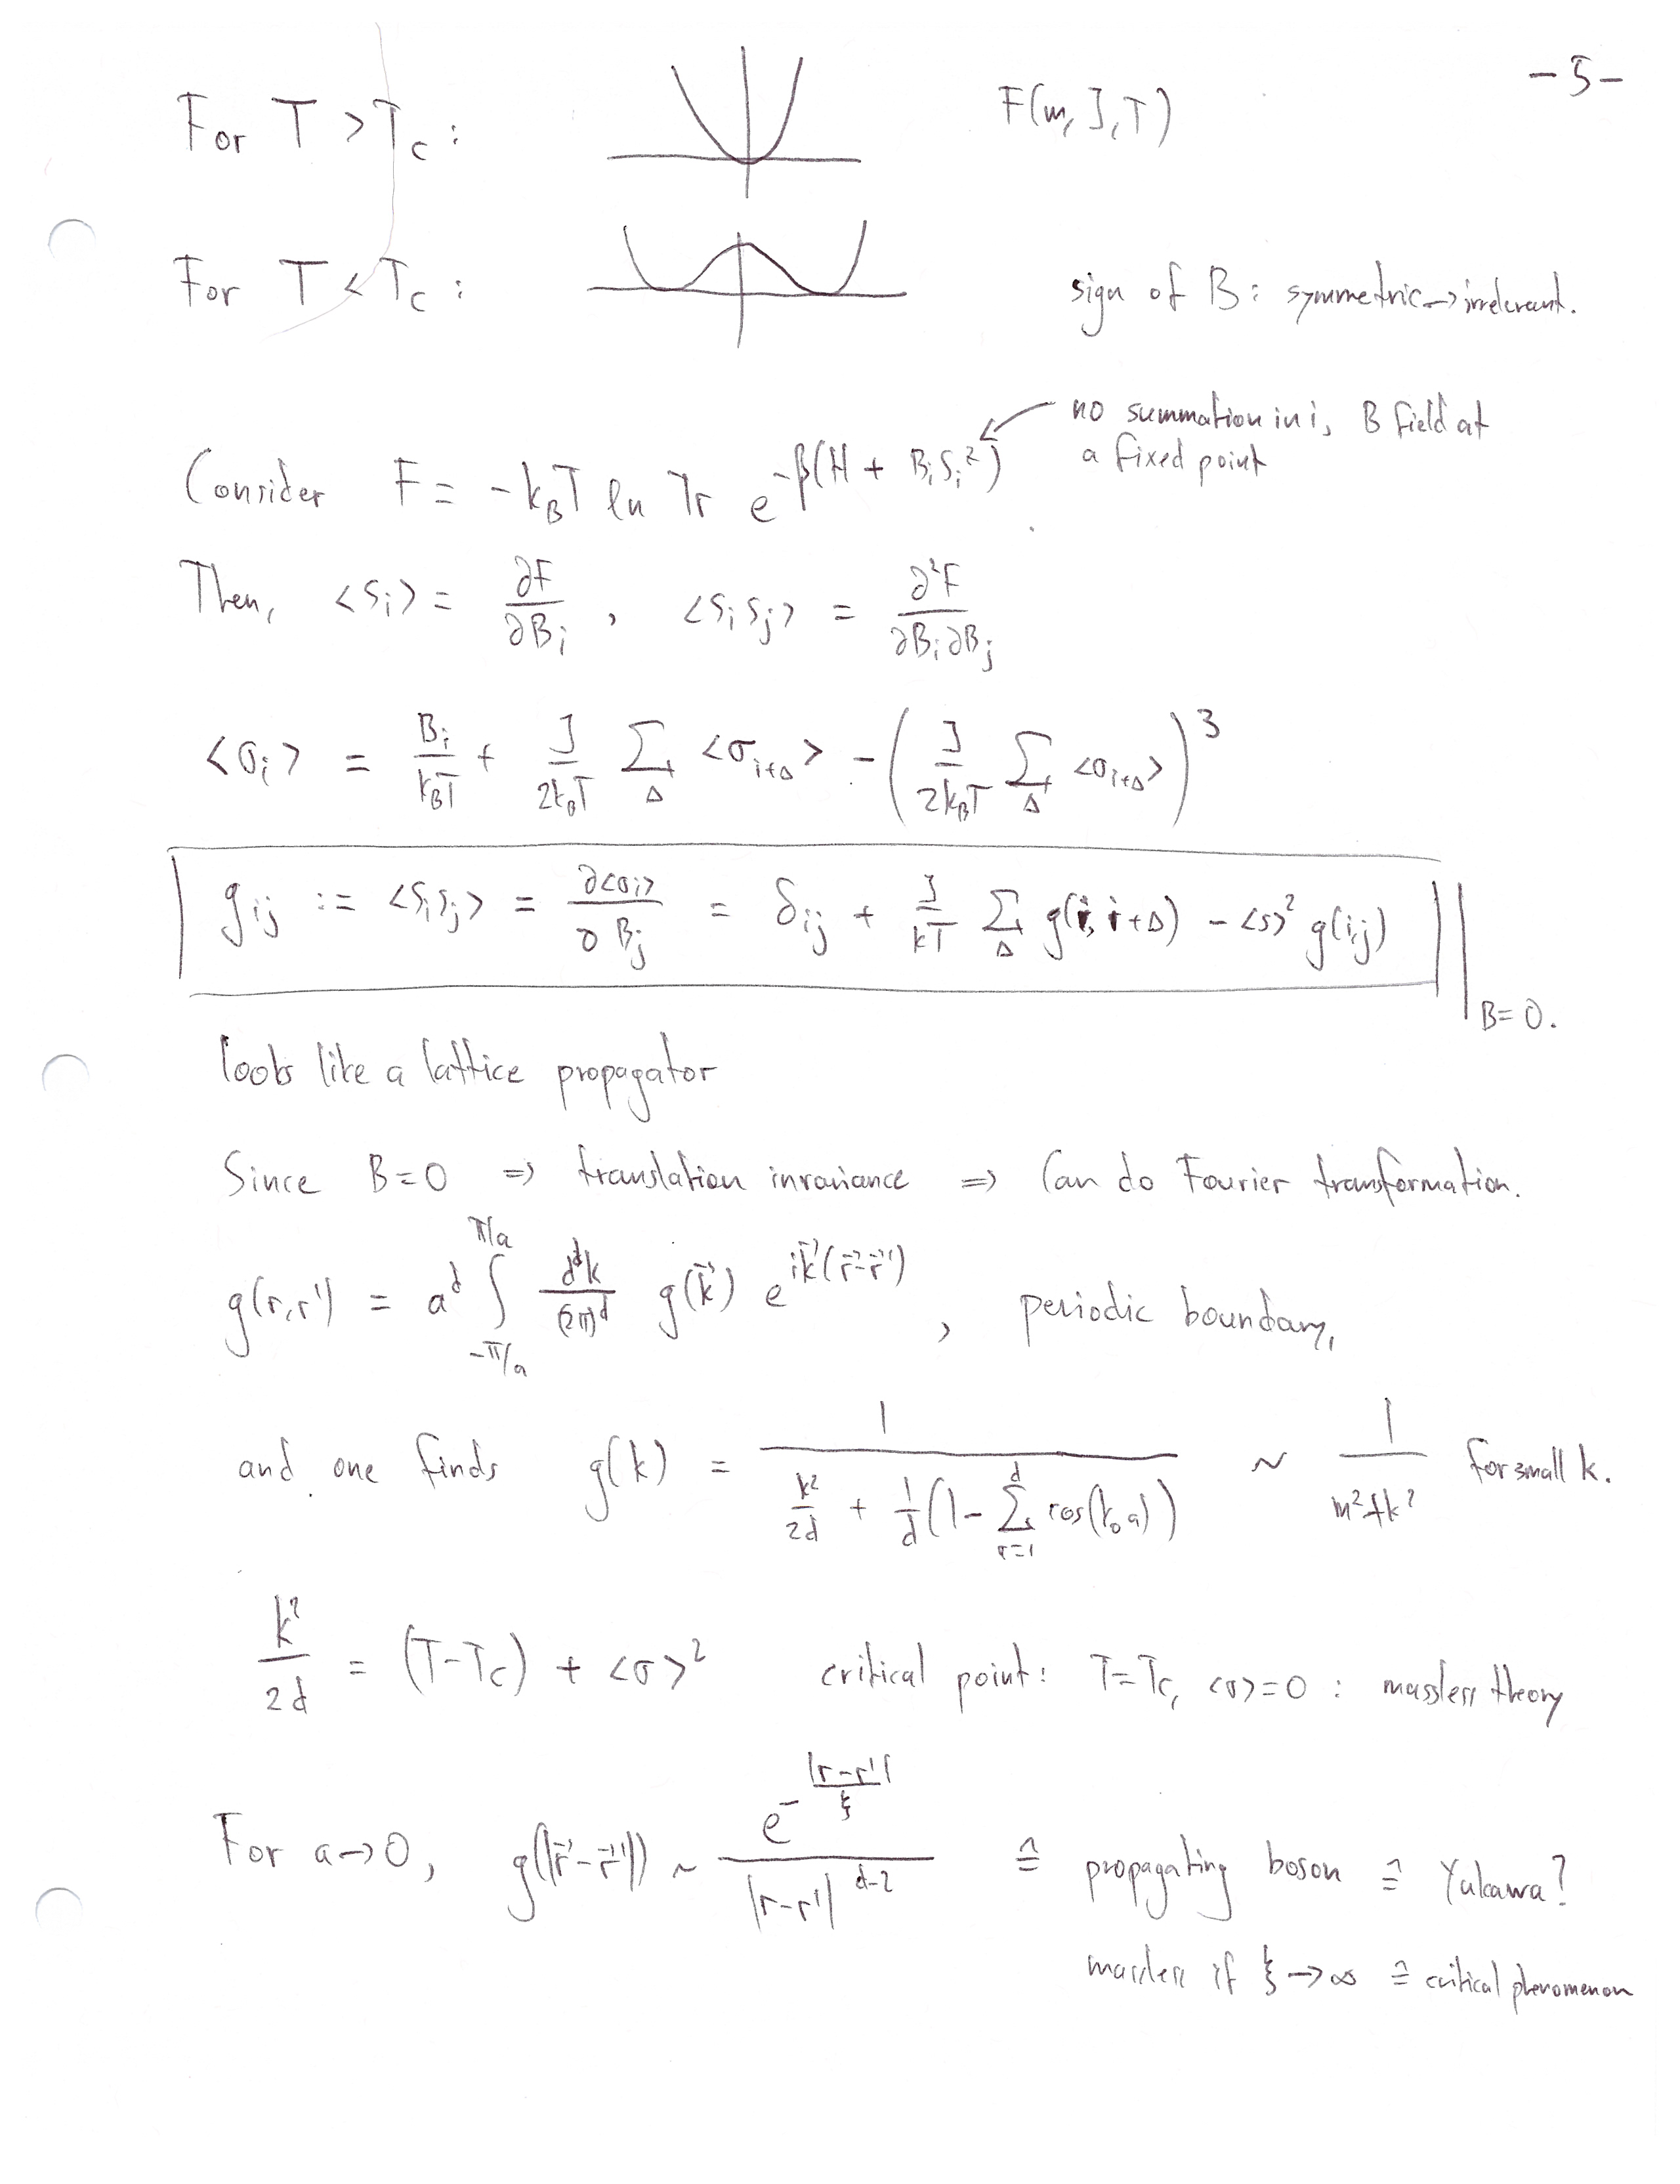 -5-
For T > T_c :    F(m, J, T)
For T < T_c :    sign of B : symmetric → irrelevant.
no summation in i, B field at
a fixed point
Consider F = -k_B T ln Tr e^{-β(H + B_i S_i^z)}
Then, <S_i> = ∂F/∂B_i , <S_i S_j> = ∂²F/∂B_i∂B_j
<σ_i> = B_i/k_BT + J/2k_BT Σ_Δ <σ_{i+Δ}> - (J/2k_BT Σ_Δ <σ_{i+Δ}>)^3
g_ij := <S_i S_j> = ∂<σ_i>/∂B_j = δ_ij + J/kT Σ_Δ g(i, i+Δ) - <s>² g(i,j) |_{B=0.}
looks like a lattice propagator
Since B=0 ⇒ translation invariance ⇒ Can do Fourier transformation.
g(r,r') = a^d ∫_{-π/a}^{π/a} d^dk/(2π)^d g(k⃗) e^{ik⃗(r⃗-r⃗')} , periodic boundary,
and one finds g(k) = 1/(k²/2d + 1/d(1 - Σ_{σ=1}^d cos(k_σ a))) ~ 1/(m²+k²) for small k.
k²/2d = (T-T_c) + <σ>²    critical point: T=T_c, <σ>=0 : massless theory
For a→0, g(|r⃗-r⃗'|) ~ e^{-|r-r'|/ξ}/|r-r'|^{d-2} ≙ propagating boson ≙ Yukawa?
massless if ξ→∞ ≙ critical phenomenon